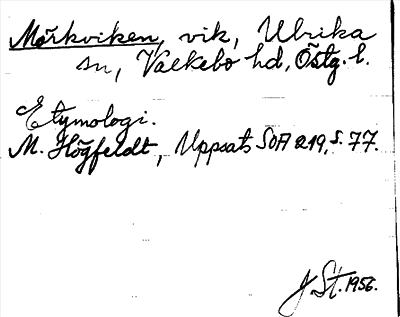 Mörkviken, vik, Ulrika
sn, Valkebo hd, Östg. l.
Etymologi.
M. Högfeldt, Uppsats SOA 219, s. 77.
J St. 1956.